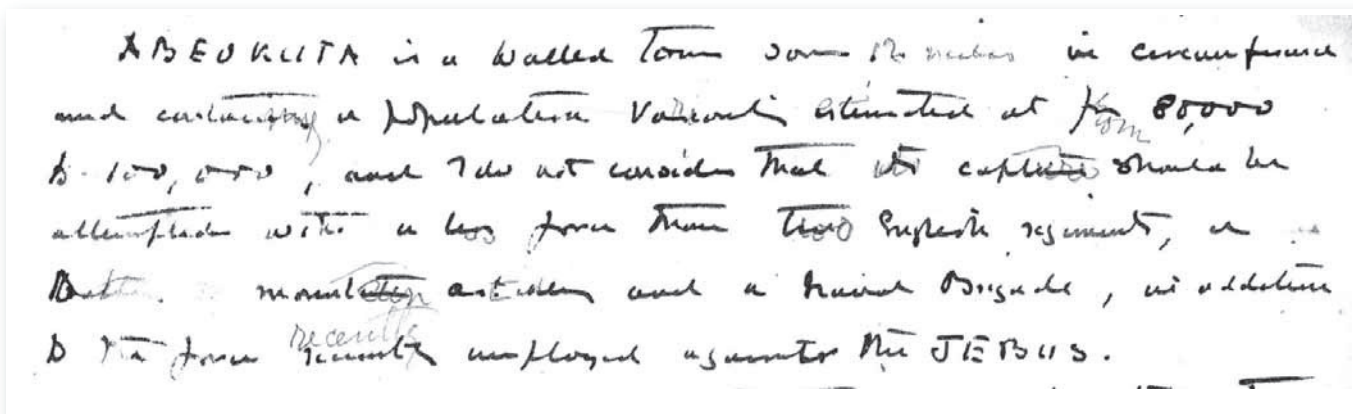 ABEOKUTA is a walled Town some 12 miles in circumference
and containing a population variously estimated at from 80,000
to 100,000, and I do not consider that its capture should be
attempted with a less force than two English regiments, a
Battery mountain artillery and a Naval Brigade, in addition
to the force recently employed against the JEBUS.